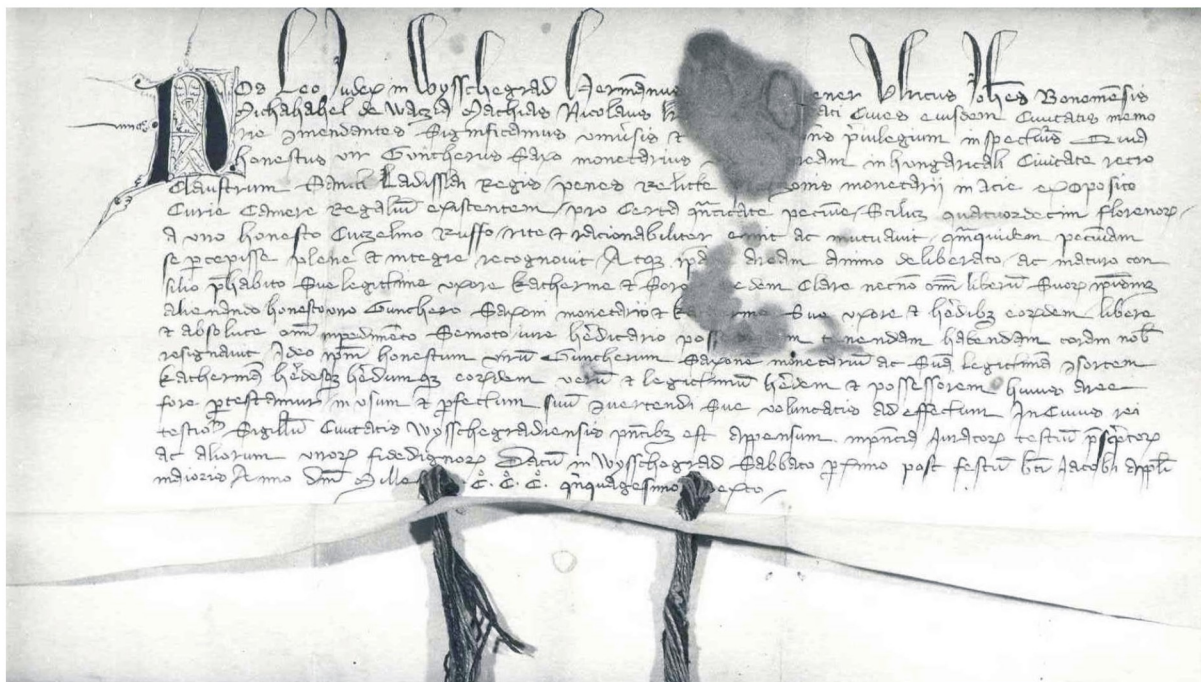 Nos Leo Judex in Wysschegrad Hermannus ener Vlricus Johes Bonomensis
Michahahel de Wazia Mathias Nicolaus rati Ciues eiusdem Ciuitatis memo
rie 9mendantes Significamus vniuersis et priuilegium inspecturis Quia
honestus vir Guncherus Saxo monetarius aream in hungaricali Ciuitate retro
Claustrum Sancti Ladislai Regis penes Relicte monetarii in acie exopposito
Curie Camere Regalium existentem pro Certa quantitate pecunie Scilicet quatuordecim florenorum
a viro honesto Cuzelmo Russo rite et racionabiliter emit ac mutuauit quamquidem pecuniam
se percepisse plene et integre recognouit Atque ipsam aream animo deliberato ac maturo con
silio prehabito Sue legittime vxore Katherine et Soro edem Clare necnon omnium liberum Suorum
alienando honesto viro Gunchero Saxoni monetario et Ka Sue vxore et heredibus eorundem libere
et absolute omni impedimento Semoto iure hereditario poss tenendam habendam coram nobis
resignauit Ideo ipsum honestum virum Guncherum Saxone monetarium ac Suam legittimam 9sortem
Katherinam heredesque heredumque eorundem verum et legittimum heredem et possessorem huius aree
fore protestamur in vsum et profectum suum 9uertendi Sue voluntatis ad effectum In Cuius rei
testimonio Sigillum Ciuitatis Wysschegradiensis presentibus est appensum in presencia Juratorum testium prescriptorum
ac aliorum virorum fidedignorum Datum in Wysschegrad Sabbato proximo post festum beati Jacobi appli
maioris Anno dm Mille C. C. C. quinquagesimo Sexto